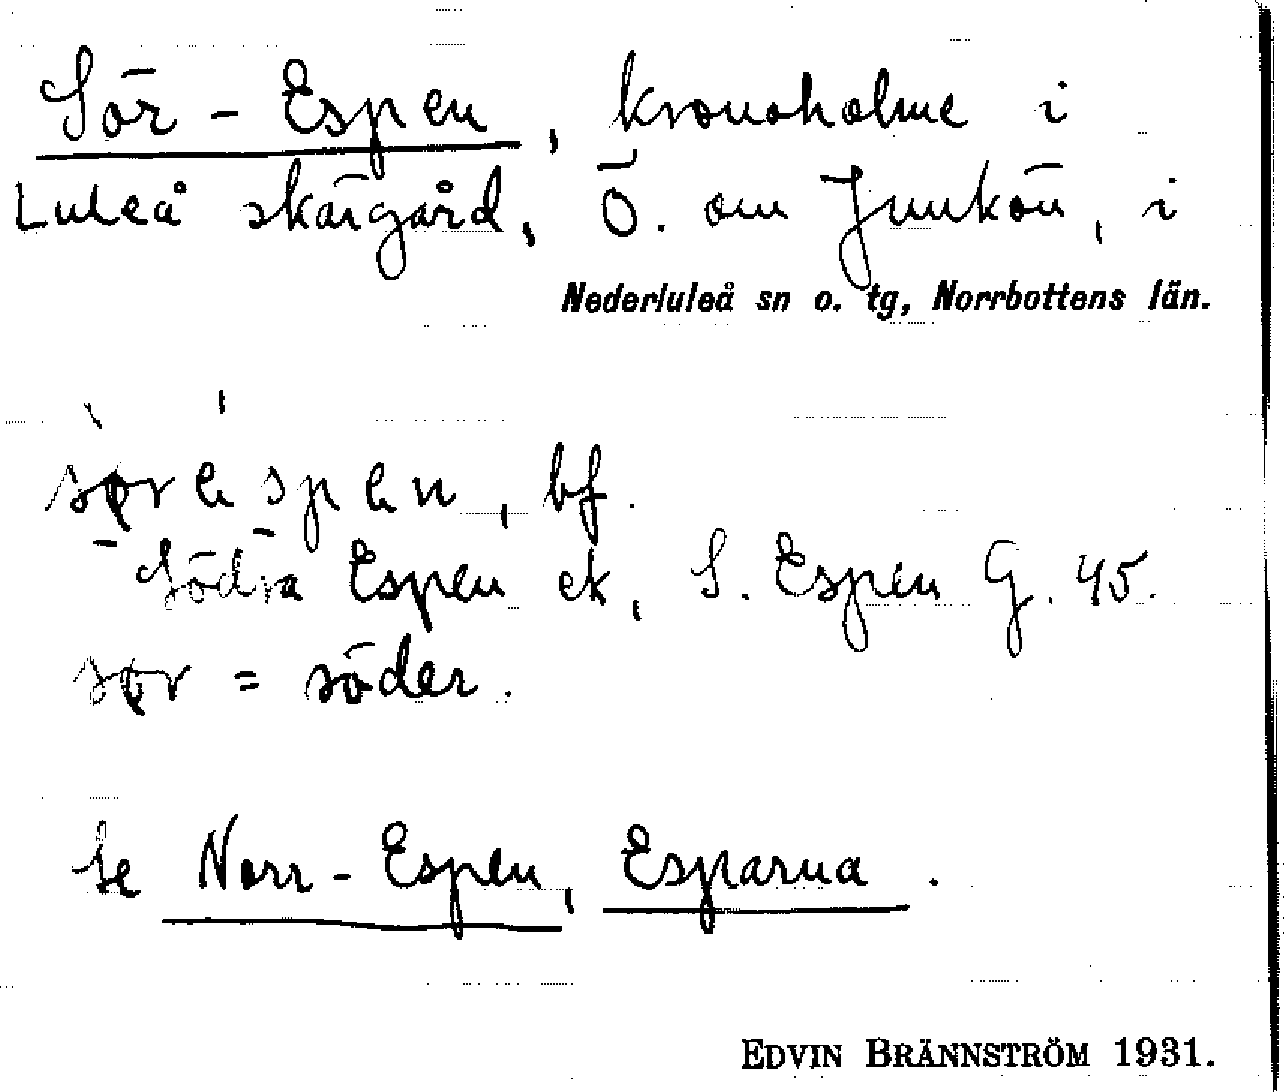 Sör-Espen, kronoholme i
Luleå skärgård, Ö. om Junkön, i
Nederluleå sn o. tg, Norrbottens län.
sørespen, bf.
Södra Espen ek, S. Espen G. 45.
sør = söder.
Se Norr-Espen, Esparna.
EDVIN BRÄNNSTRÖM 1931.